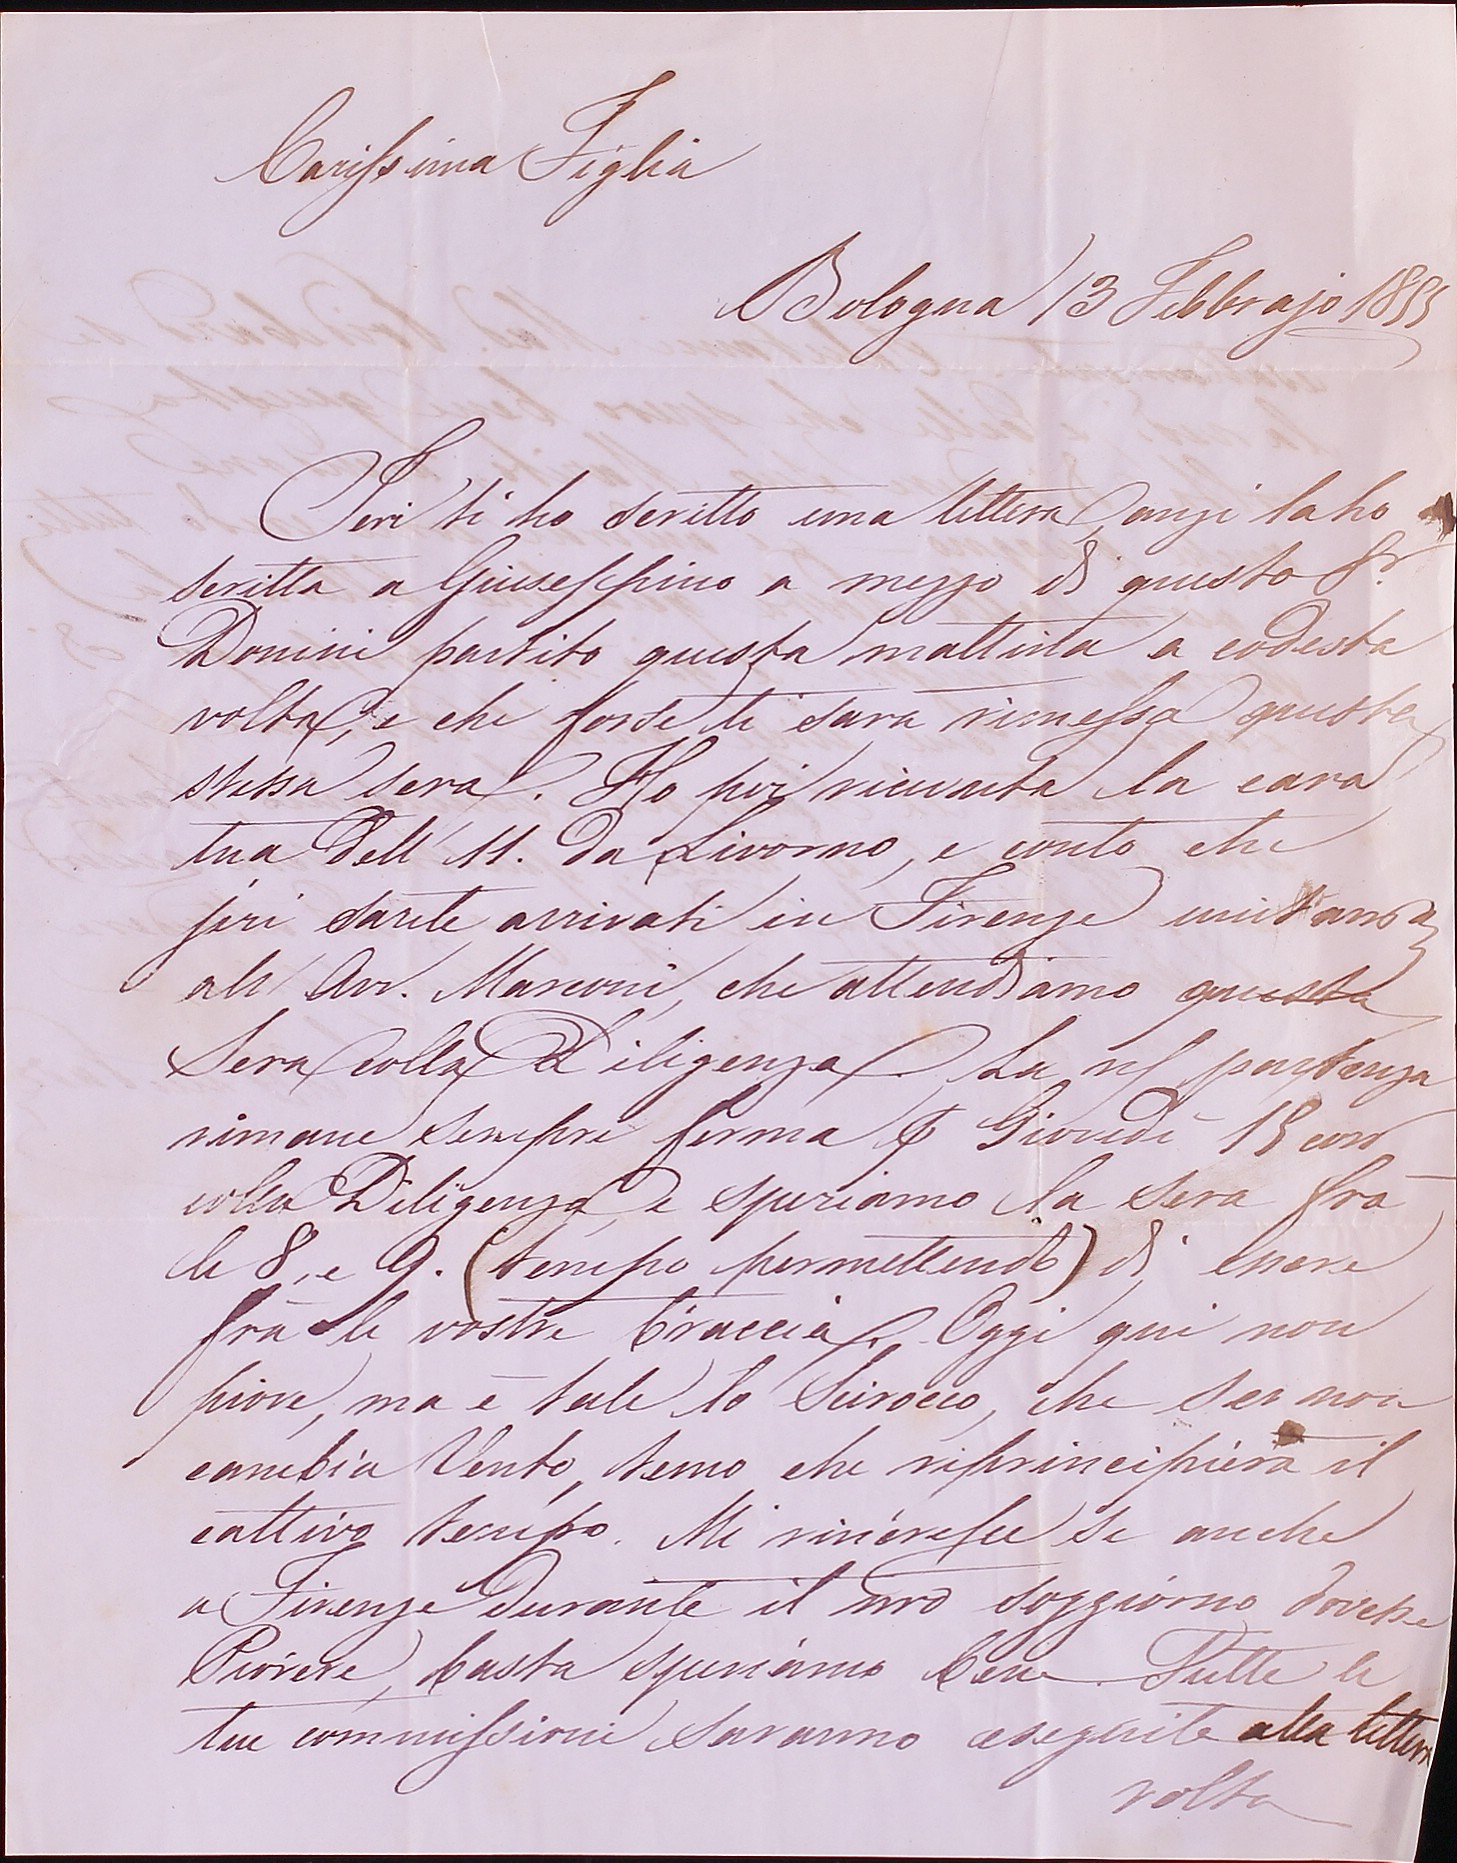 Carissima Figlia
Bologna 13 Febbrajo 1855
Jeri ti ho scritto una lettera, anzi la ho
scritta a Giuseppino a mezzo di questo Sr.
Donini partito questa mattina a codesta
volta, e che forse ti sarà rimessa questa
stessa sera. Ho poi ricevuta la cara
tua dell' 11. da Livorno, e conto che
jeri sarete arrivati in Firenze
all' Avv. Marconi, che attendiamo questa
Sera colla Diligenza. La partenza
rimane sempre ferma Giovedì 15 corr
colla Diligenza e speriamo la sera frà
le 8, e 9. (tempo permettendo) di essere
frà le vostre braccia. Oggi qui non
piove, ma è tale lo Scirocco, che se non
cambia Vento, temo che riprincipierà il
cattivo tempo. Mi rincresce se anche
a Firenze durante il nro soggiorno dovesse
Piovere, basta speriamo bene. Tutte le
tue commissioni saranno eseguite alla lettera
volta